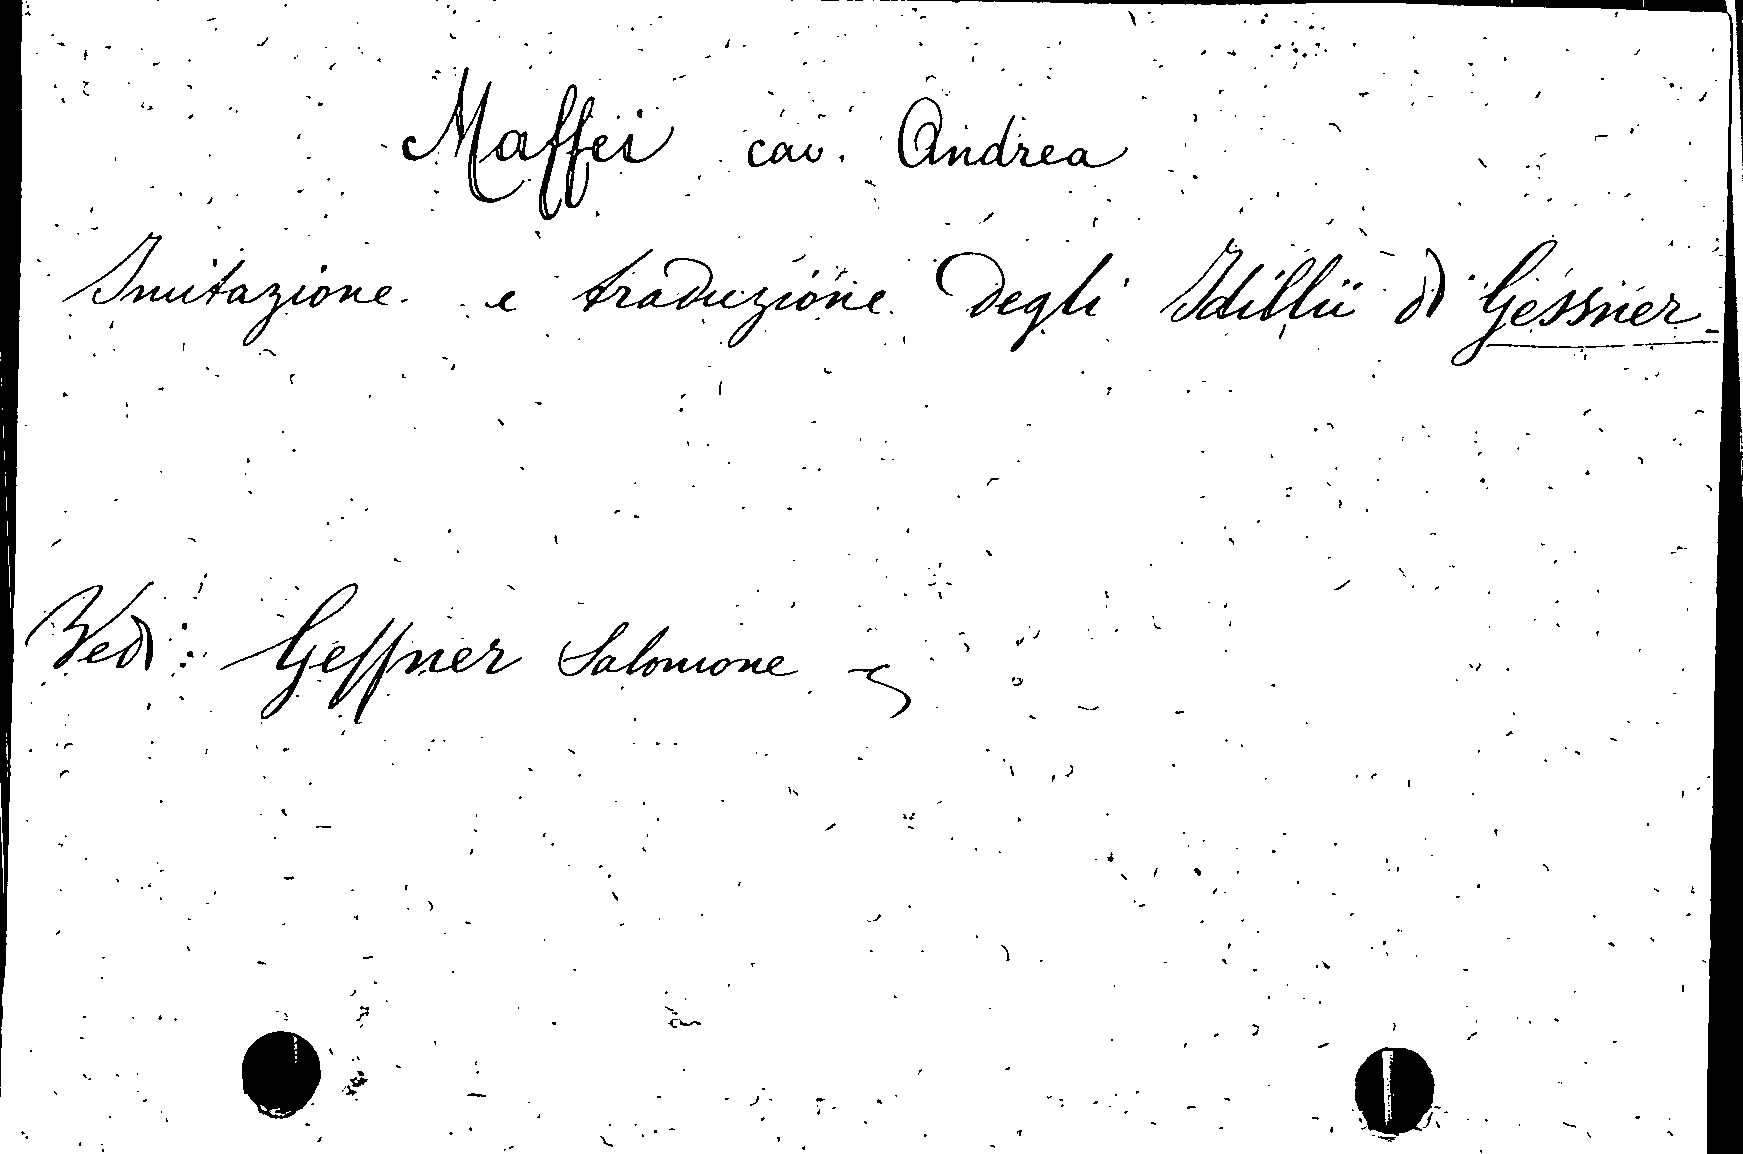 Maffei cav. Andrea
Imitazione e traduzione degli Idillii di Gessner
Vedi: Geſsner Salomone